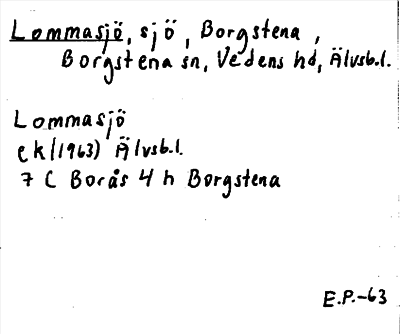 Lommasjö, sjö, Borgstena,
Borgstena sn, Vedens hd, Älvsb.l.
Lommasjö
ek/(1963) Älvsb.l.
7 C Borås 4 h Borgstena
E.P.-63